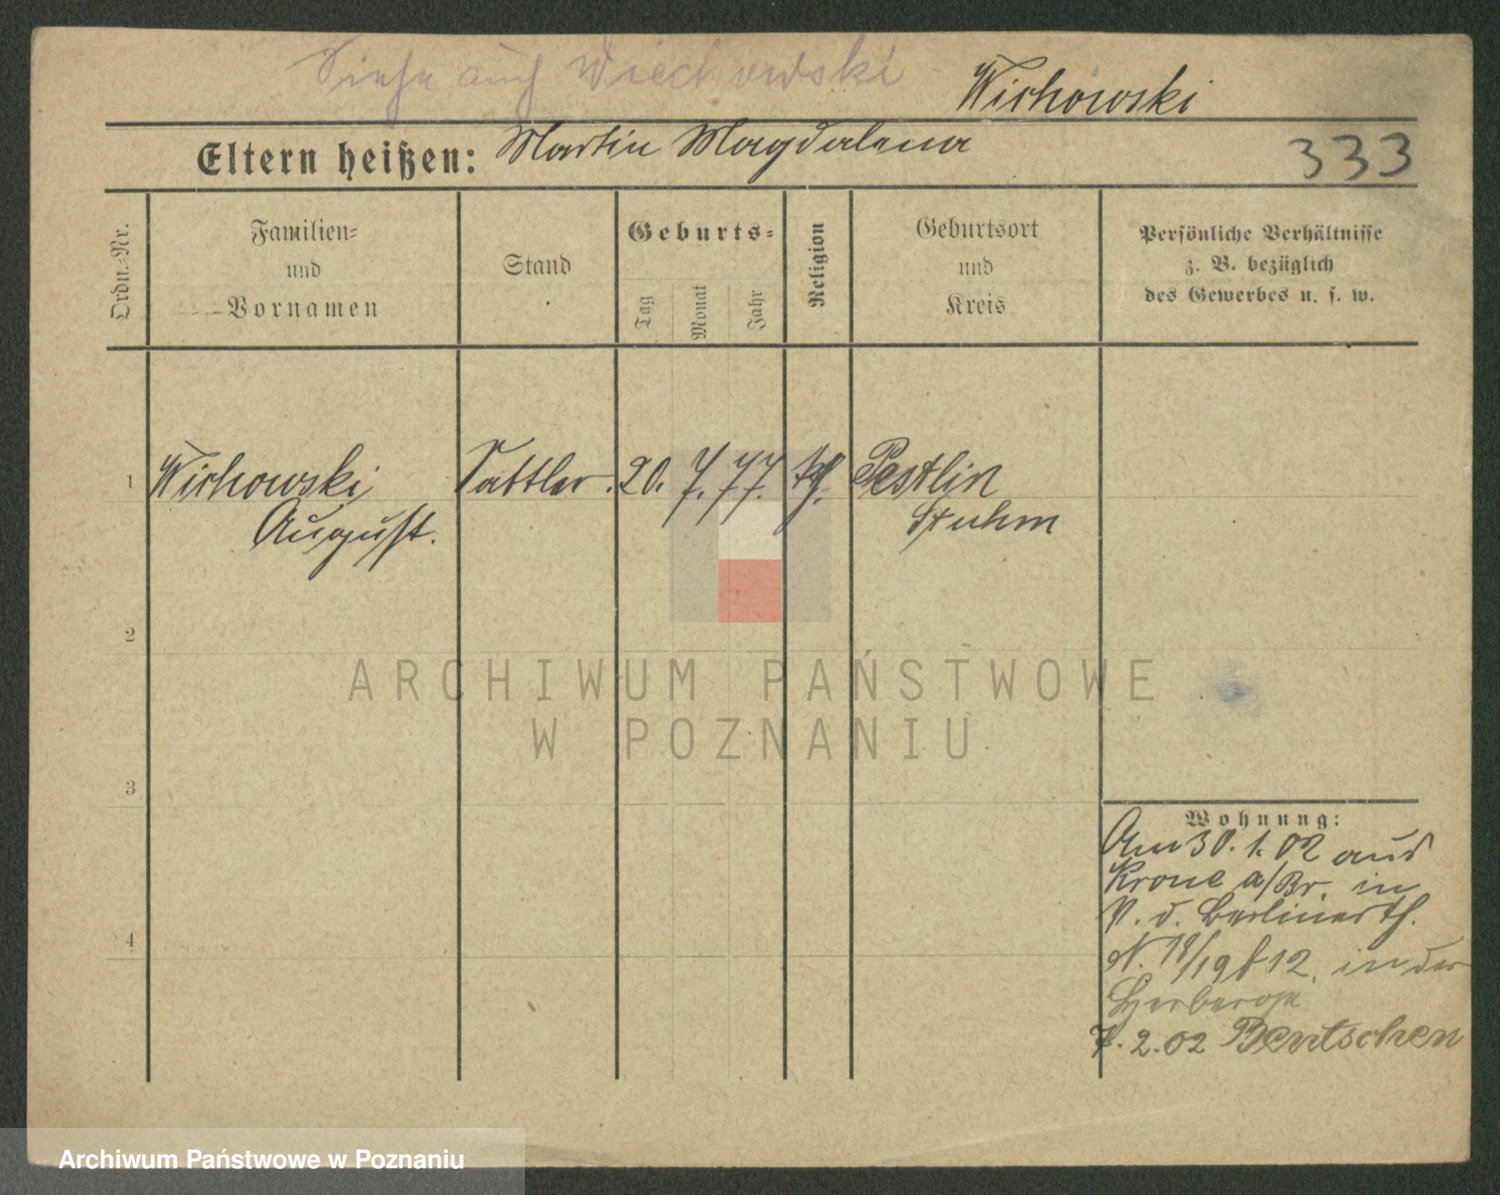 Siehe auch Wiechowski
Wichowski
Eltern heißen: Martin Magdalena
333
Ordn.-Nr.
Familien-
und
Vornamen
Stand
Geburts-
Tag
Monat
Jahr
Religion
Geburtsort
und
Kreis
Persönliche Verhältnisse
z. B. bezüglich
des Gewerbes u. s. w.
1 Wichowski Sattler. 20. 7. 77. kth. Pestlin
August. Stuhm
2
3
4
Wohnung:
Am 30. 1. 02 aus
Krone a/Br. in
V. d. Berlinerth.
N. 18/19 12. in der
Herberge
7. 2. 02 Bentschen
ARCHIWUM PAŃSTWOWE
W POZNANIU
Archiwum Państwowe w Poznaniu